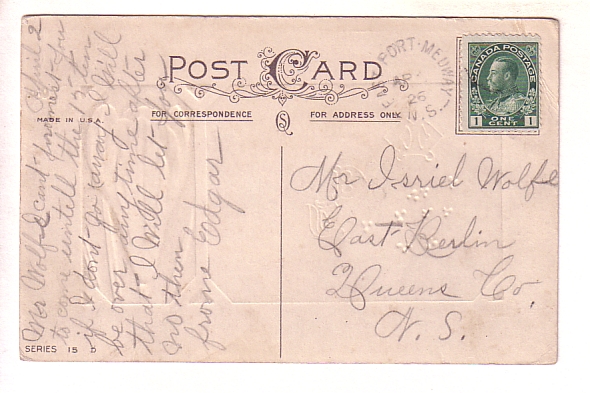 POST CARD
MADE IN U.S.A.
FOR CORRESPONDENCE
FOR ADDRESS ONLY
PORT MEDWAY
AP
26
N.S.
CANADA POSTAGE
1 ONE CENT 1
Mr Isriel Wolfe
East Berlin
Queens Co.
N. S.
Mr Wolfe I cant promest you
to come untell the 13 ten
if I dont go away I Will
be over any time after
that I Will let you
no then
frome Edgar
SERIES 15 D